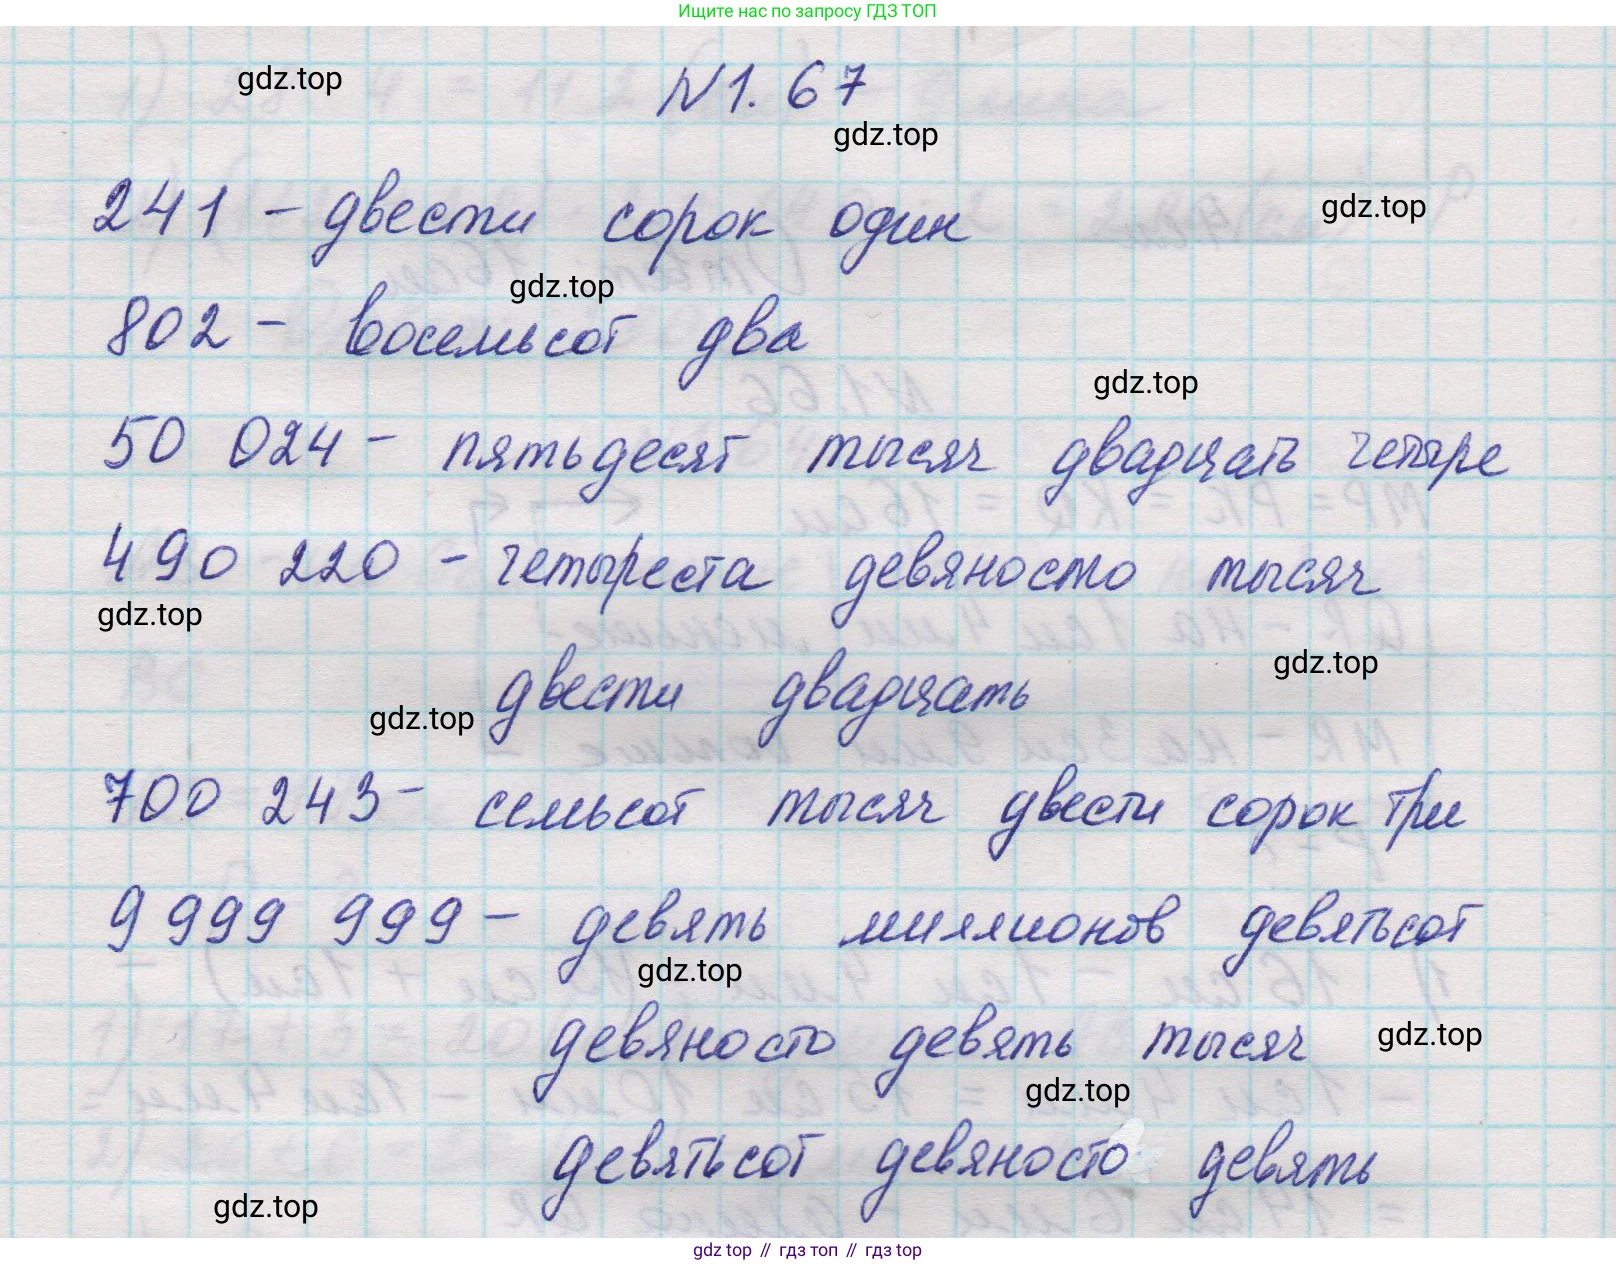 Ищите нас по запросу ГДЗ ТОП
gdz.top
N1. 67
gdz.top
241 - двести сорок один
gdz.top
gdz.top
802 - восемьсот два
gdz.top
50 024 - пятьдесят тысяч двадцать четыре
490 220 - четыреста девяносто тысяч
gdz.top
двести двадцать
gdz.top
gdz.top
700 243 - семьсот тысяч двести сорок три
9 999 999 - девять миллионов девятьсот
gdz.top
девяносто девять тысяч
gdz.top
gdz.top
девятьсот девяносто девять
gdz.top
gdz top // гдз топ // гдз top